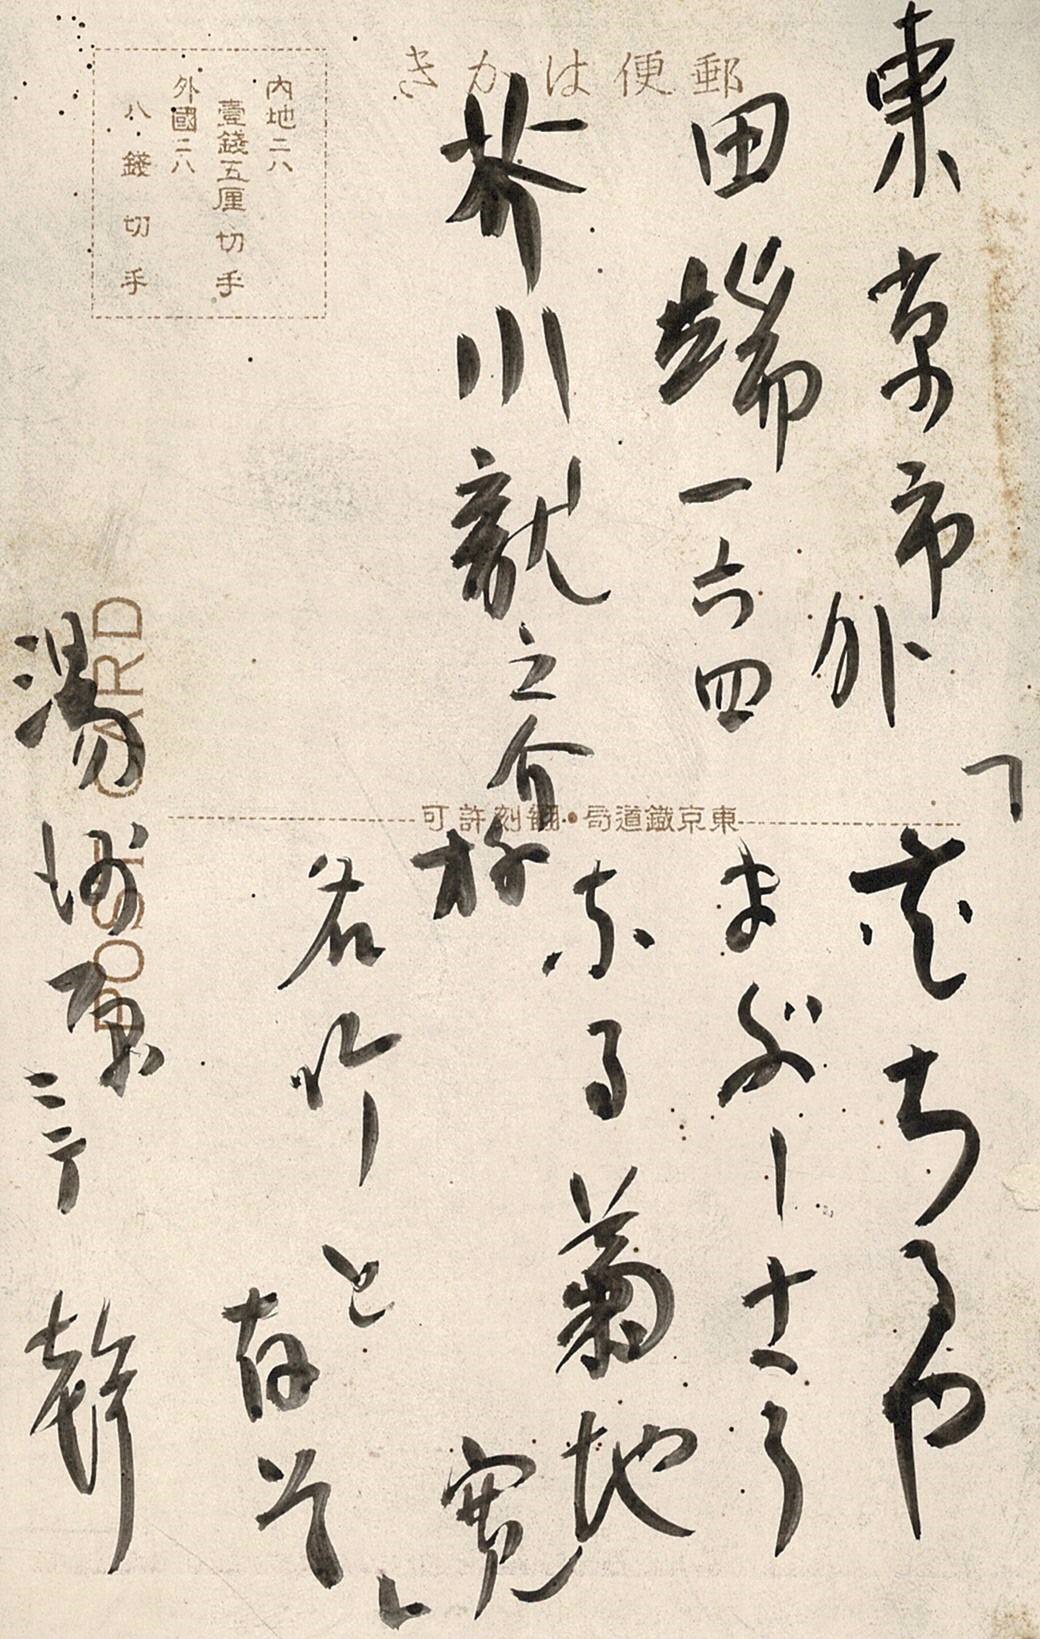 郵便はかき
内地ニハ
壹錢五厘切手
外國ニハ
八錢切手
東京市外
田端一六四
芥川龍之介様
東京鐵道局・飜刻許可
POST CARD
「花ちるや
まぶしさう
なる菊地
寛
」
湯河原ニテ